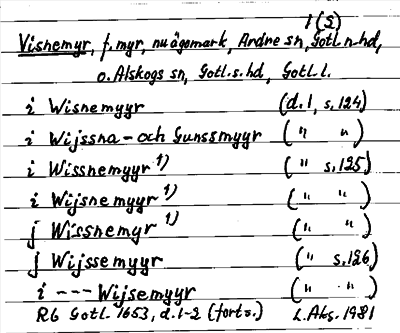 1(5)
Visnemyr, f. myr, nu ägomark, Andre sn, Gotl. n. hd,
o. Alskogs sn, Gotl. s. hd, Gotl. l.
i Wisnemyyr (d.1, s.124)
i Wijssna- och Gunssmyyr (" ")
i Wissnemyyr 1) (" s.125)
i Wijsnemyyr 1) (" ")
j Wissnemyr 1) (" ")
j Wijssemyyr (" s.126)
i --- Wijsemyyr (" ")
RG Gotl. 1653, d.1-2 (forts.) L. Aks. 1981